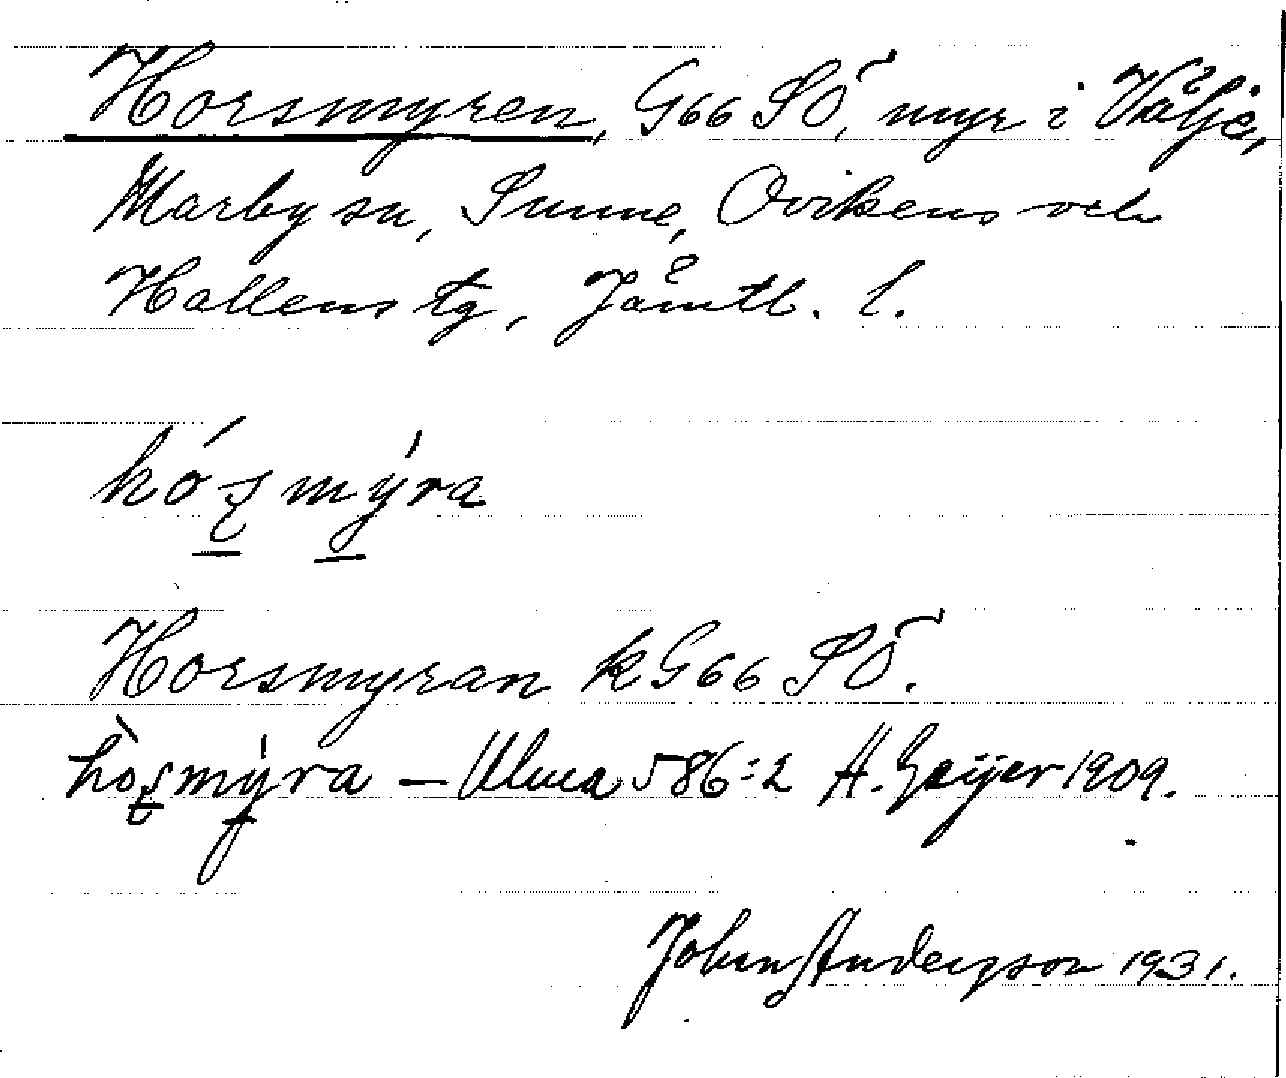 Horsmyren, G66 SÖ, myr i Välje,
Marby sn, Sunne, Ovikens och
Hallens tg, Jämtl. l.
hósmýra
Horsmyran kG66 SÖ.
hòsmýra – Ulma 586:2 H. Geijer 1909.
John Andersson 1931.